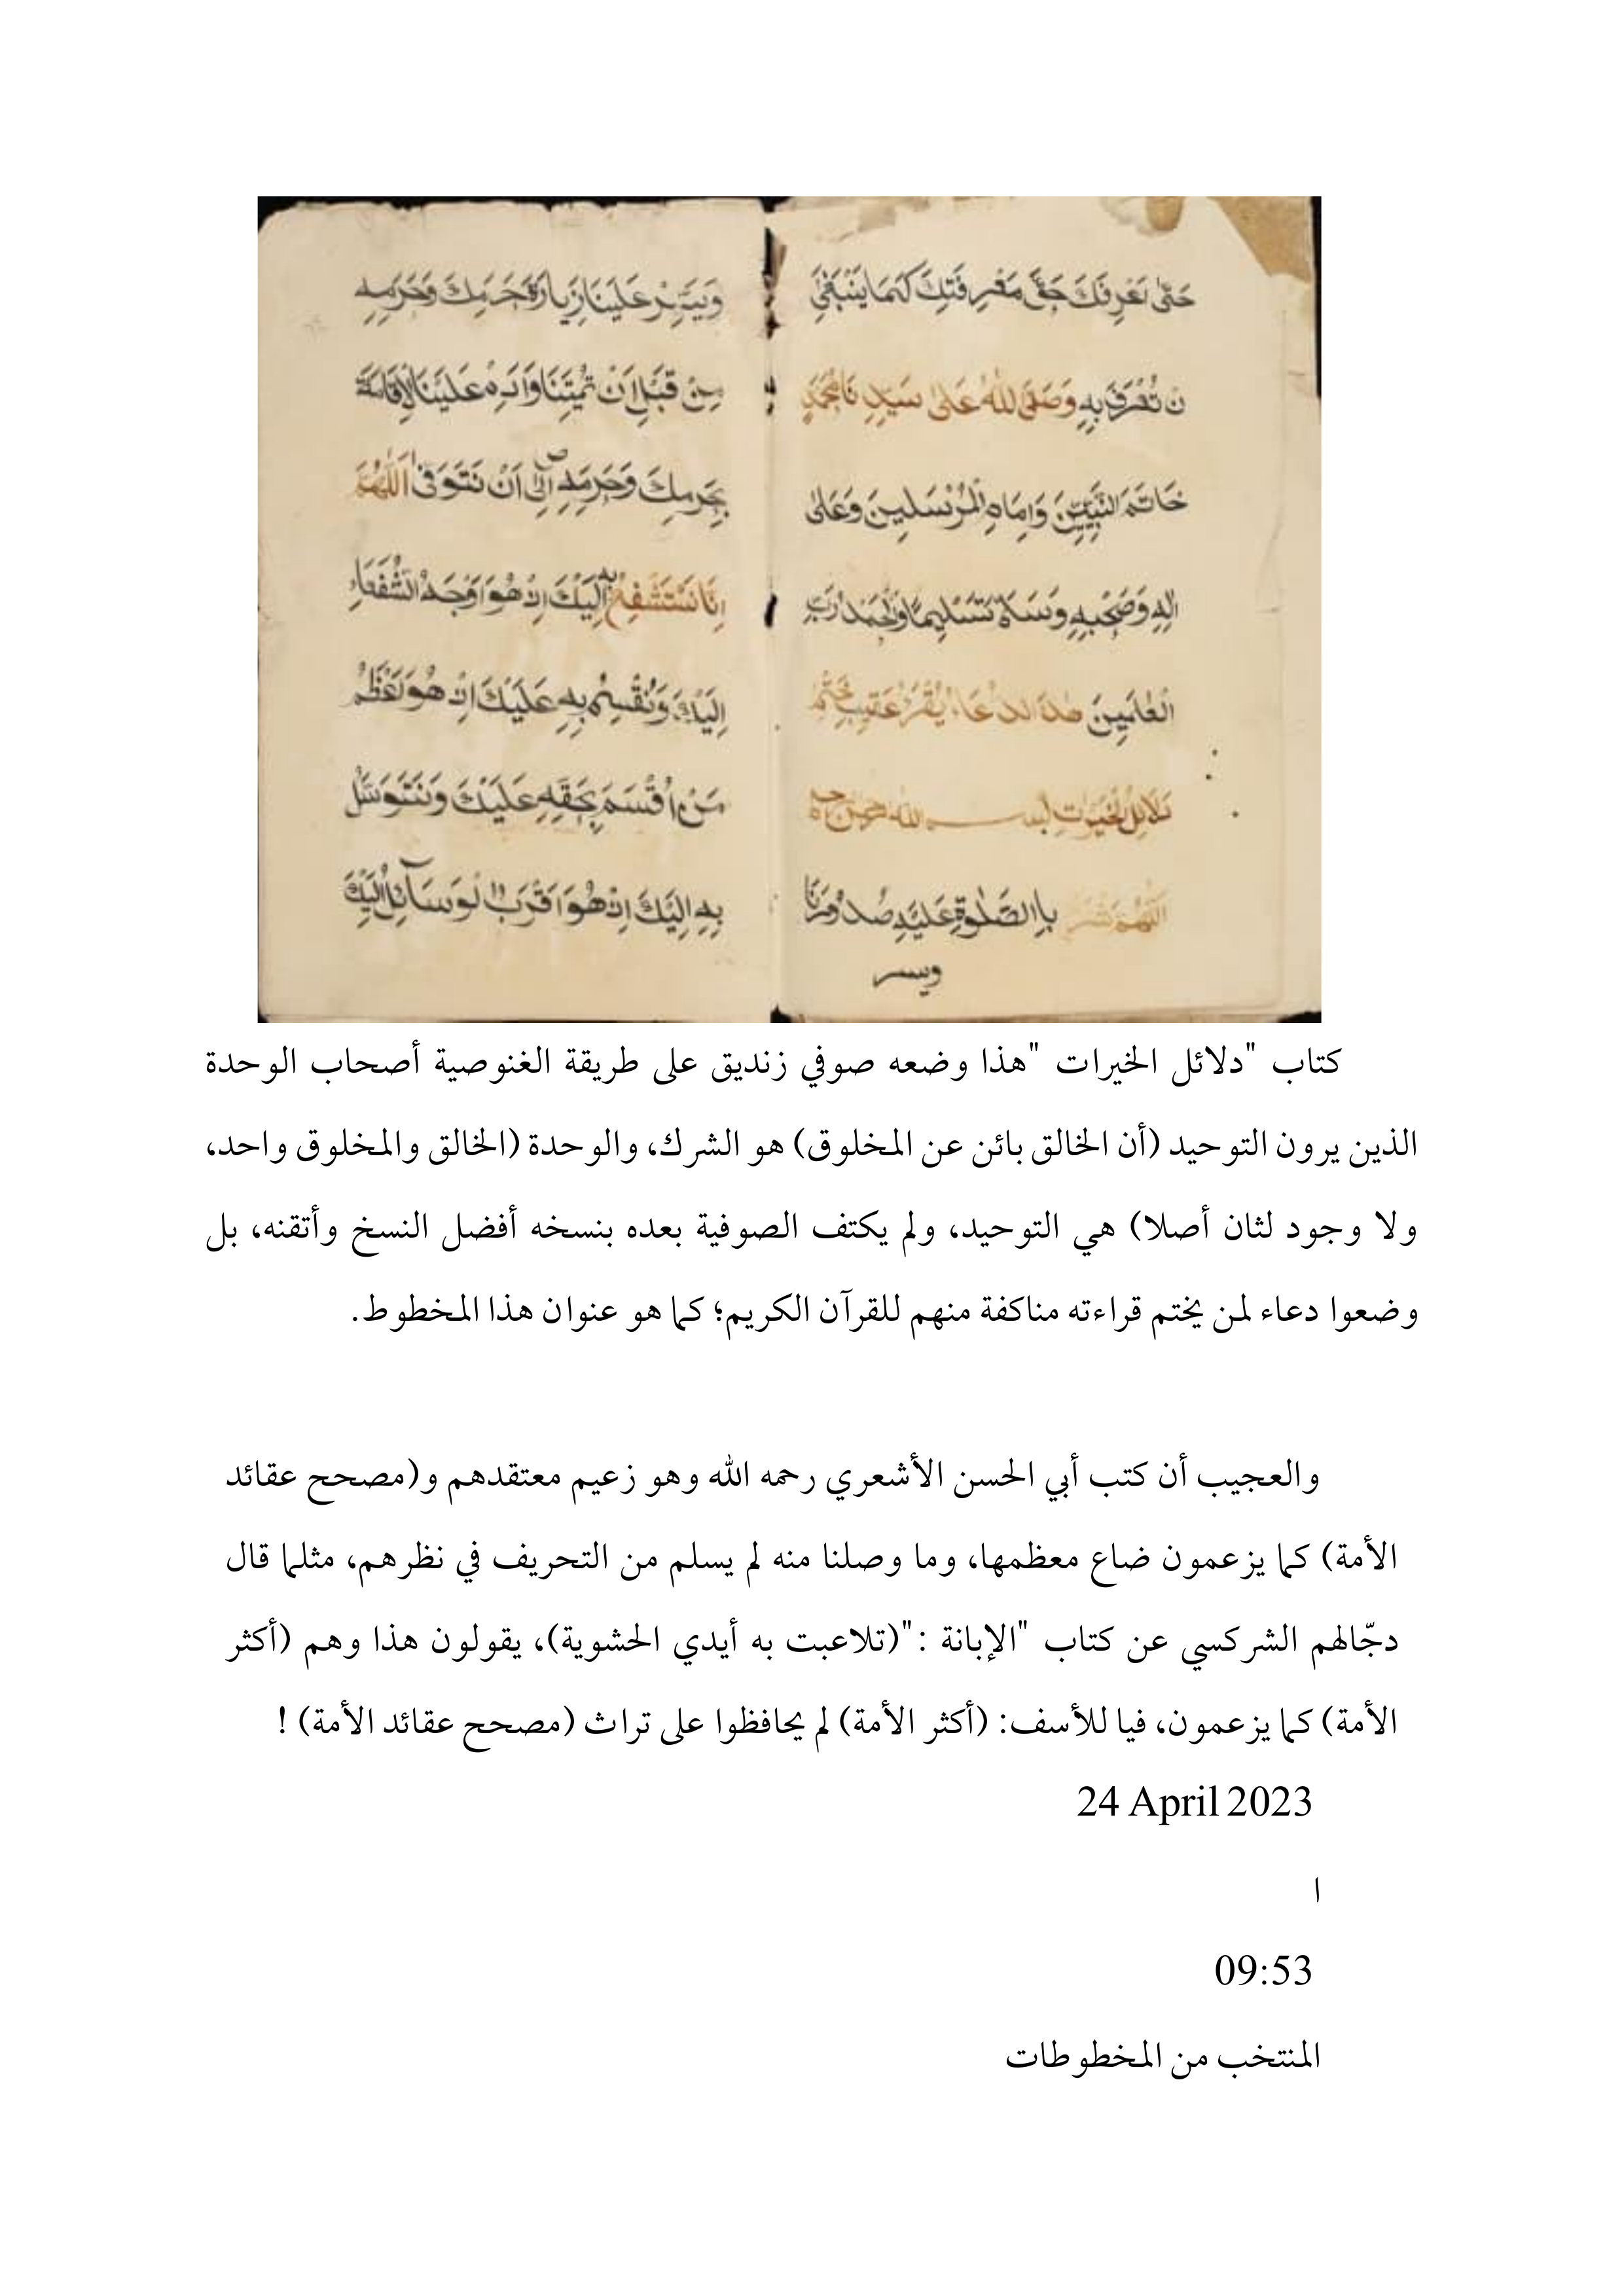 حَتّٰى نَعْرِفَكَ حَقَّ مَعْرِفَتِكَ كَمَا يَنْبَغِي
ن تُعْرَفَ بِهِ وَصَلَّى اللّٰهُ عَلٰى سَيِّدِنَا مُحَمَّدٍ
خَاتَمِ النَّبِيّٖنَ وَاِمَامِ الْمُرْسَلِينَ وَعَلٰى
اٰلِهِ وَصَحْبِهِ وَسَلَّمَ تَسْلِيمًا وَالْحَمْدُ رَبِّ
الْعٰلَمِينَ هٰذَا الدُّعَاءُ يُقْرَءُ عَقِيبَ خَتْمِ
دَلَائِلُ الْخَيْرَاتِ بسم الله
اَللّٰهُمَّ شْرَحْ بِاالصَّلٰوةِ عَلَيْهِ صُدُورَنَا
ويسر
وَيَسِّرْ عَلَيْنَا زِيَارَةَ حَرَمِكَ وَحَرَمِهِ
مِنْ قَبْلِ اَنْ تُمِيتَنَا وَاَدِمْ عَلَيْنَا الْاِقَامَةَ
بِحَرَمِكَ وَحَرَمِهِ اِلٰى اَنْ نَتَوَفّٰى اَللّٰهُمَّ
اِنَّا نَسْتَشْفِعُ بِهِ اِلَيْكَ اِذْ هُوَ اَوْجَهُ الشُّفَعَاءِ
اِلَيْكَ وَنُقْسِمُ بِهِ عَلَيْكَ اِذْ هُوَ اَعْظَمُ
مَنْ اُقْسِمَ بِحَقِّهِ عَلَيْكَ وَنَتَوَسَّلُ
بِهِ اِلَيْكَ اِذْ هُوَ اَقْرَبُ الْوَسَآئِلِ اِلَيْكَ
كتاب "دلائل الخيرات "هذا وضعه صوفي زنديق على طريقة الغنوصية أصحاب الوحدة
الذين يرون التوحيد (أن الخالق بائن عن المخلوق) هو الشرك، والوحدة (الخالق والمخلوق واحد،
ولا وجود لثان أصلا) هي التوحيد، ولم يكتف الصوفية بعده بنسخه أفضل النسخ وأتقنه، بل
وضعوا دعاء لمن يختم قراءته مناكفة منهم للقرآن الكريم؛ كما هو عنوان هذا المخطوط.
والعجيب أن كتب أبي الحسن الأشعري رحمه الله وهو زعيم معتقدهم و(مصحح عقائد
الأمة) كما يزعمون ضاع معظمها، وما وصلنا منه لم يسلم من التحريف في نظرهم، مثلما قال
دجّالهم الشركسي عن كتاب "الإبانة :"(تلاعبت به أيدي الحشوية)، يقولون هذا وهم (أكثر
الأمة) كما يزعمون، فيا للأسف: (أكثر الأمة) لم يحافظوا على تراث (مصحح عقائد الأمة) !
24 April 2023
ا
09:53
المنتخب من المخطوطات